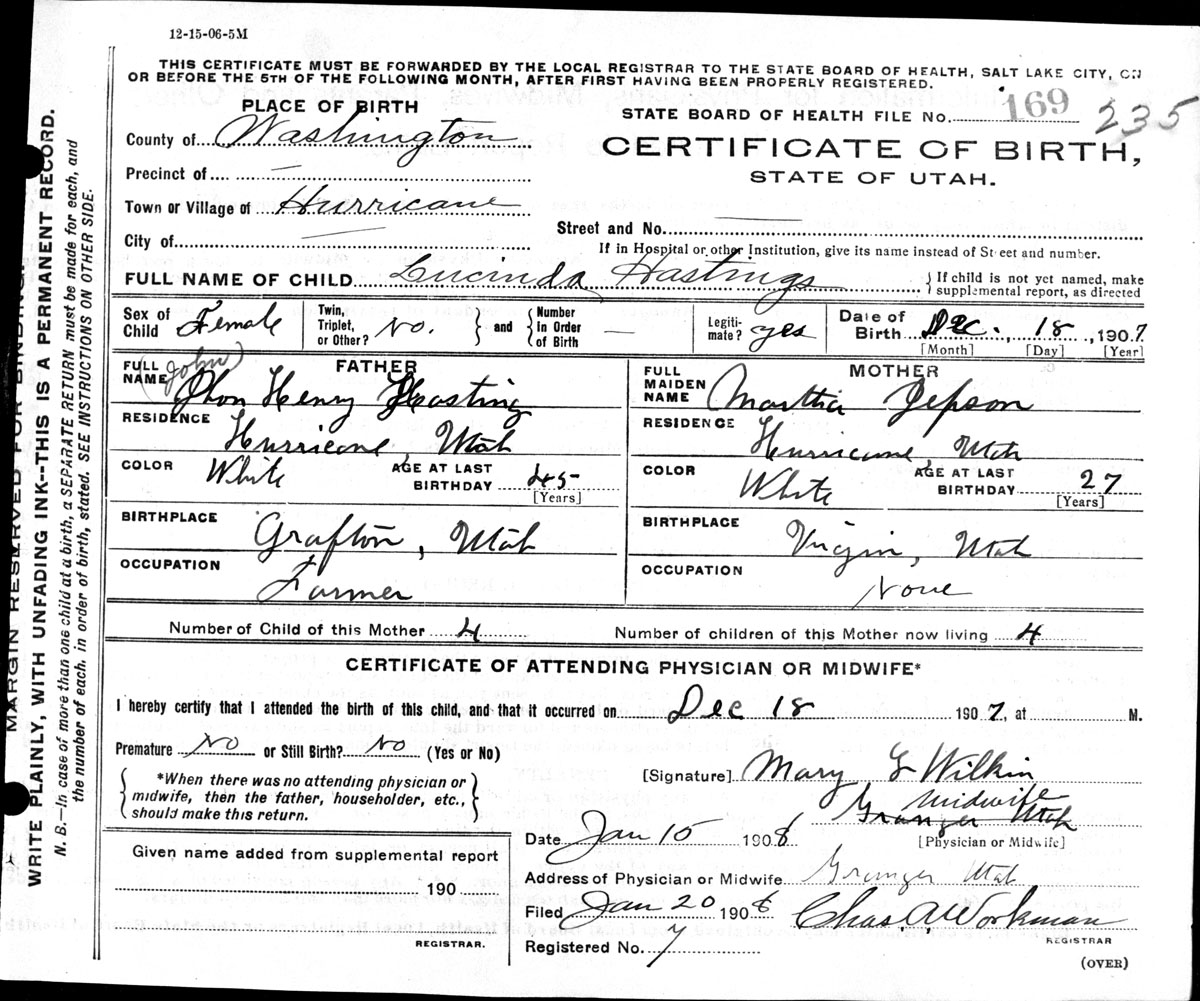 12-15-06-5M
THIS CERTIFICATE MUST BE FORWARDED BY THE LOCAL REGISTRAR TO THE STATE BOARD OF HEALTH, SALT LAKE CITY, ON
OR BEFORE THE 5TH OF THE FOLLOWING MONTH, AFTER FIRST HAVING BEEN PROPERLY REGISTERED.
PLACE OF BIRTH
STATE BOARD OF HEALTH FILE No. 169 235
County of Washington
CERTIFICATE OF BIRTH,
STATE OF UTAH.
Precinct of —
Town or Village of Hurricane
Street and No. —
City of —
If in Hospital or other Institution, give its name instead of Street and number.
FULL NAME OF CHILD Lucinda Hastings
If child is not yet named, make
supplemental report, as directed
Sex of Child Female
Twin, Triplet, or Other? No.
and Number In Order of Birth —
Legitimate? yes
Date of Birth Dec. 18, 1907
[Month] [Day] [Year]
FATHER
FULL NAME (John) Jhon Henry Hasting
RESIDENCE Hurricane, Utah
COLOR White
AGE AT LAST BIRTHDAY 45
[Years]
BIRTHPLACE Grafton, Utah
OCCUPATION Farmer
MOTHER
FULL MAIDEN NAME Martha Jepson
RESIDENCE Hurricane, Utah
COLOR White
AGE AT LAST BIRTHDAY 27
[Years]
BIRTHPLACE Virgin, Utah
OCCUPATION None
Number of Child of this Mother 4
Number of children of this Mother now living 4
CERTIFICATE OF ATTENDING PHYSICIAN OR MIDWIFE*
I hereby certify that I attended the birth of this child, and that it occurred on Dec 18 1907, at M.
Premature No or Still Birth? No (Yes or No)
*When there was no attending physician or
midwife, then the father, householder, etc.,
should make this return.
[Signature] Mary L Wilkin
Midwife
Granger Utah
[Physician or Midwife]
Date Jan 15 1908
Address of Physician or Midwife Granger Utah
Filed Jan 20 1908 Chas. A. Workman
REGISTRAR
Registered No. 7
(OVER)
Given name added from supplemental report
190
REGISTRAR.
MARGIN RESERVED FOR BINDING.
WRITE PLAINLY, WITH UNFADING INK--THIS IS A PERMANENT RECORD.
N. B.—In case of more than one child at a birth, a SEPARATE RETURN must be made for each, and
the number of each, in order of birth, stated. SEE INSTRUCTIONS ON OTHER SIDE.